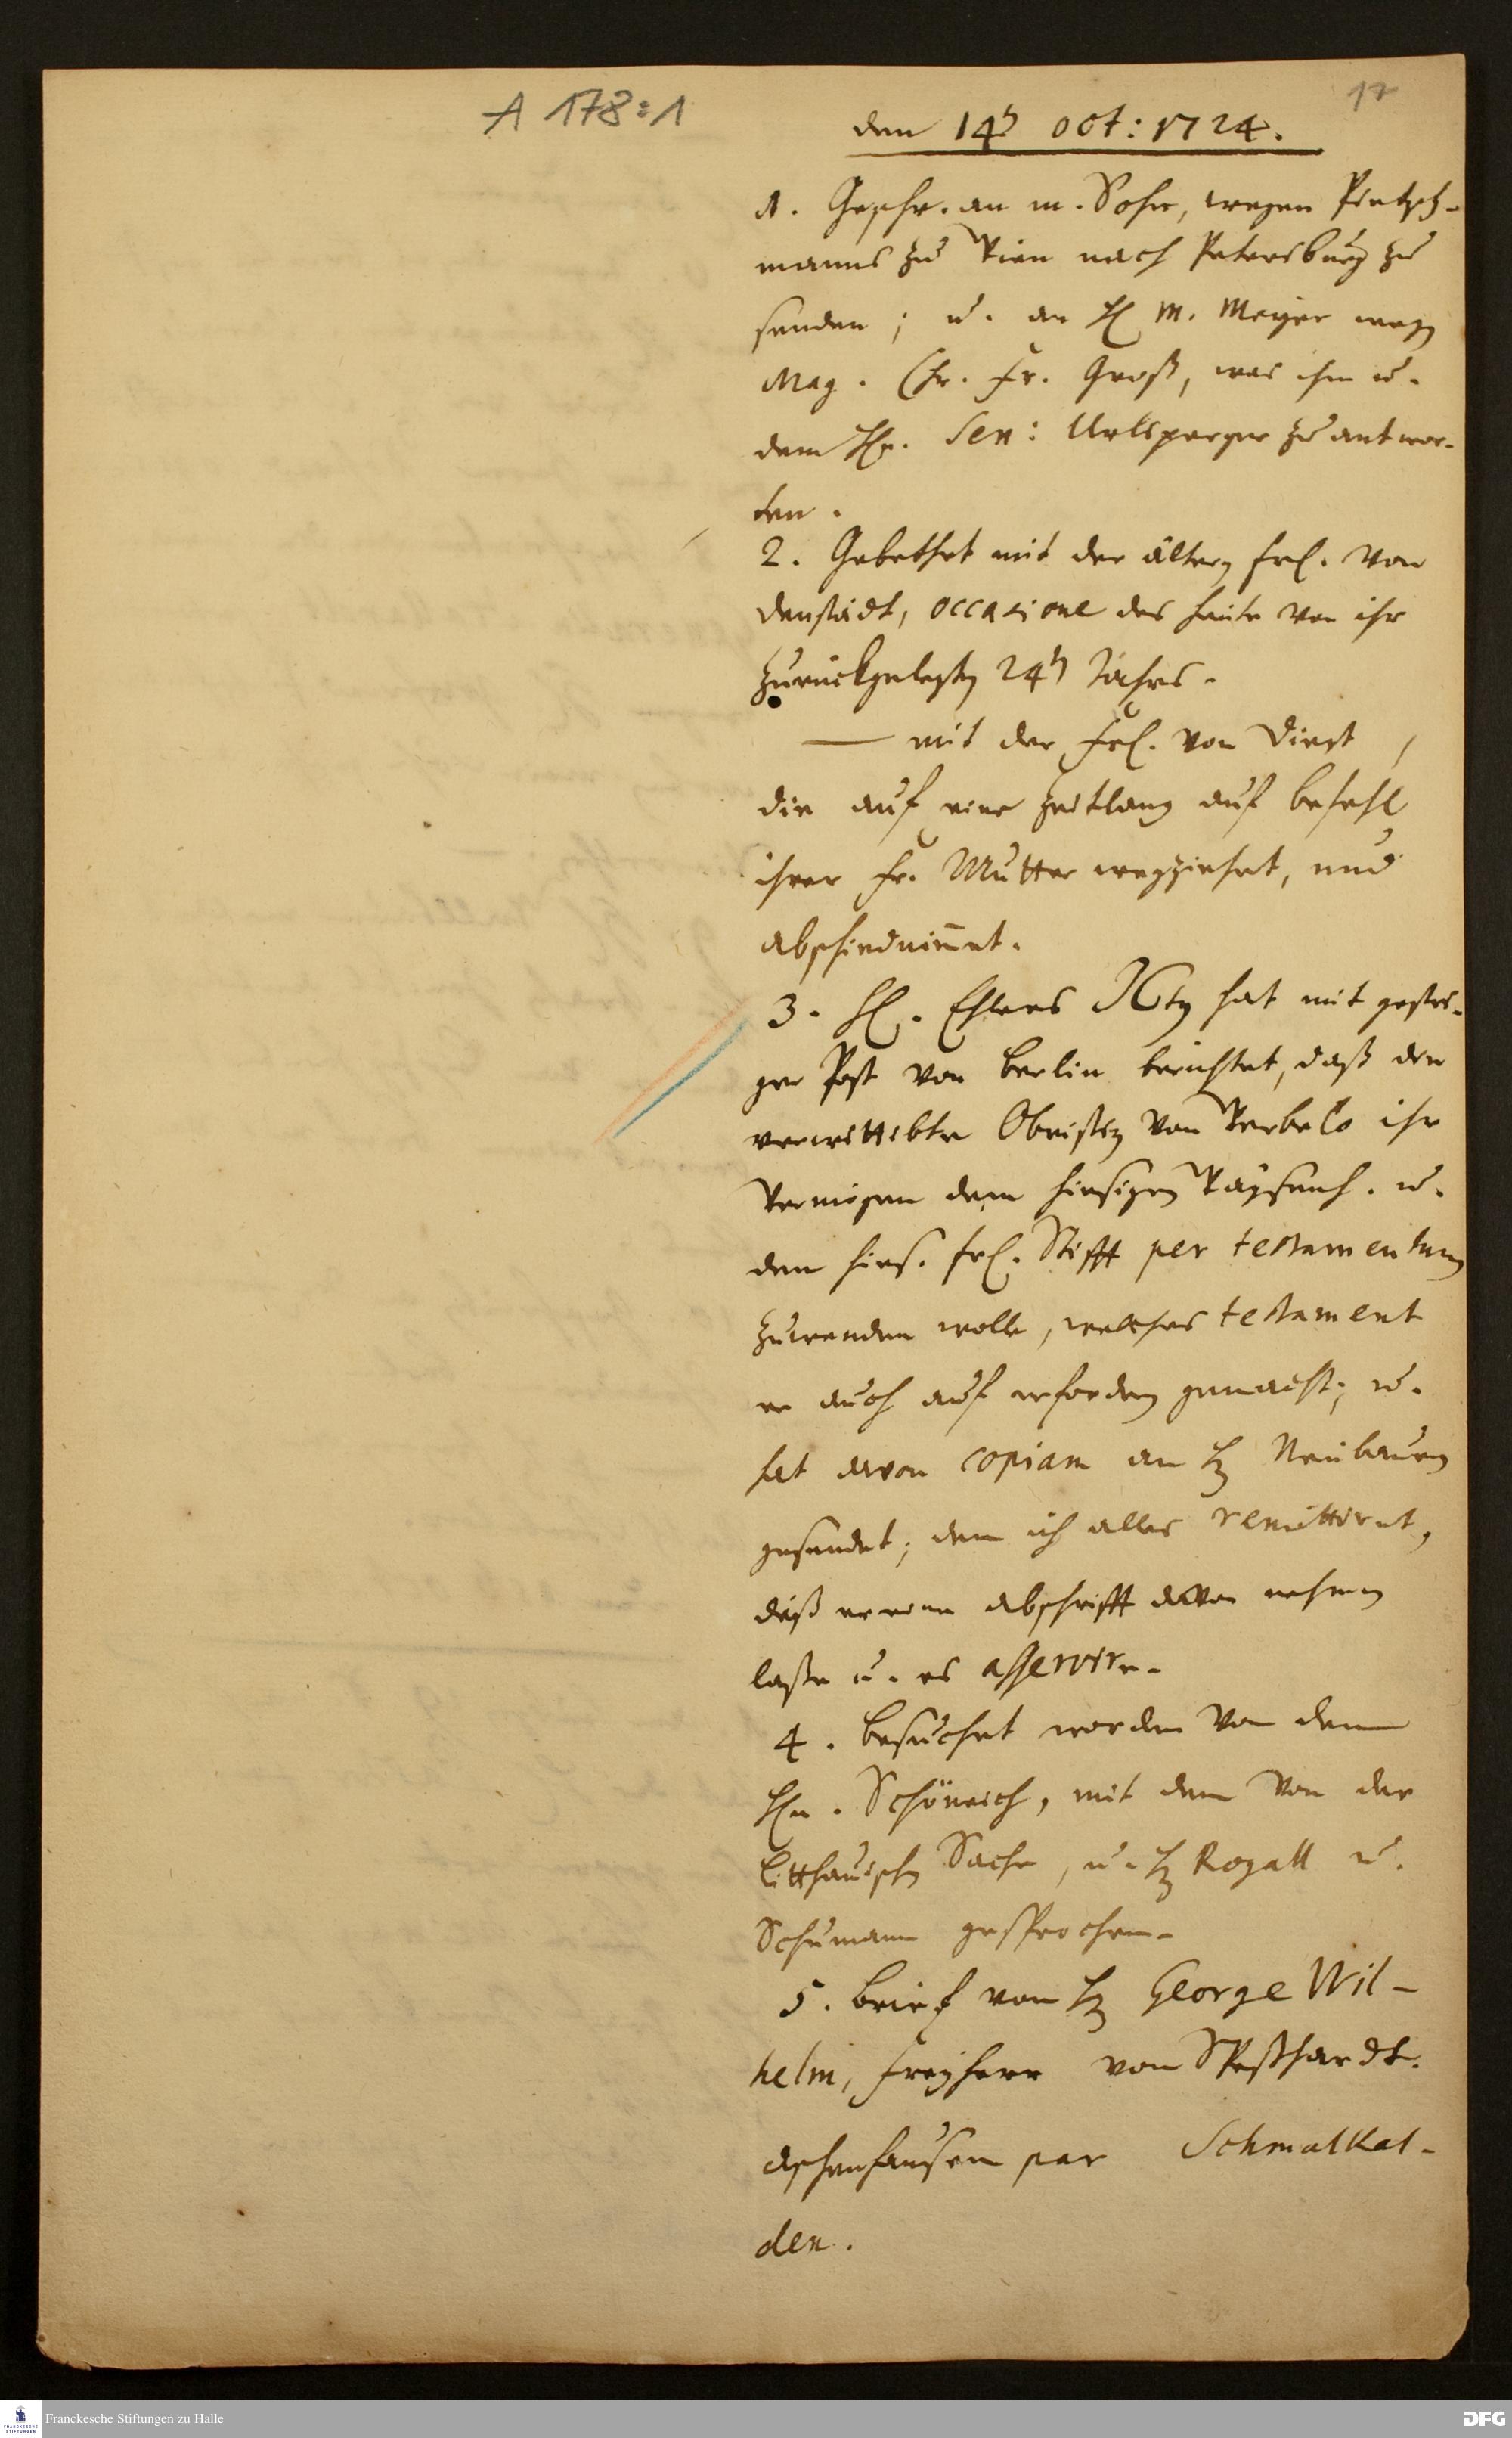 A 178:1
17
den 14ten oct: 1724.
1. Geschr. an m. Sohn, wegen Pietsch-
manns zu Wien nach Petersburg zu
senden; u. an H M. Meyer wegen
Mag. Chr. Fr. Groß, was ihm u.
dem Hn. Sen: Urlsperger zu antwor-
ten.
2. Gebethet mit der ältern Frl. von
Denstädt, occasione des heute von ihr
zurückgelegten 24ten Jahrs.
— mit der Frl. von Diest,
die auf eine Zeitlang auf befehl
ihrer Fr. Mutter wegziehet, und
abschied nim̄et.
3. H. Ehlers hat mit gestri-
ger Post von Berlin berichtet, daß die
verwittibte Obristin von Terbelo ihr
Vermögen dem hiesigen Waysenh. u.
dem hies. Frl. Stifft per testamentum
zuwenden wolle, welches testament
er auch auf erfordern gemacht; u.
hat davon copiam an H Neubauern
gesendet; dem ich alles remittiret,
daß er eine abschrifft davon nehmen
laße u. es asservire.
4. Besuchet worden von dem
Hn. Schöneich, mit dem von der
Litthauischen Sache, u. H Rogall u.
Schumann gesprochen.
5. Brief von H George Wil-
helm, Freyherr von Speßhardt.
Aschenhausen par Schmalkal-
den.
Franckesche Stiftungen zu Halle
FRANCKESCHE STIFTUNGEN
DFG